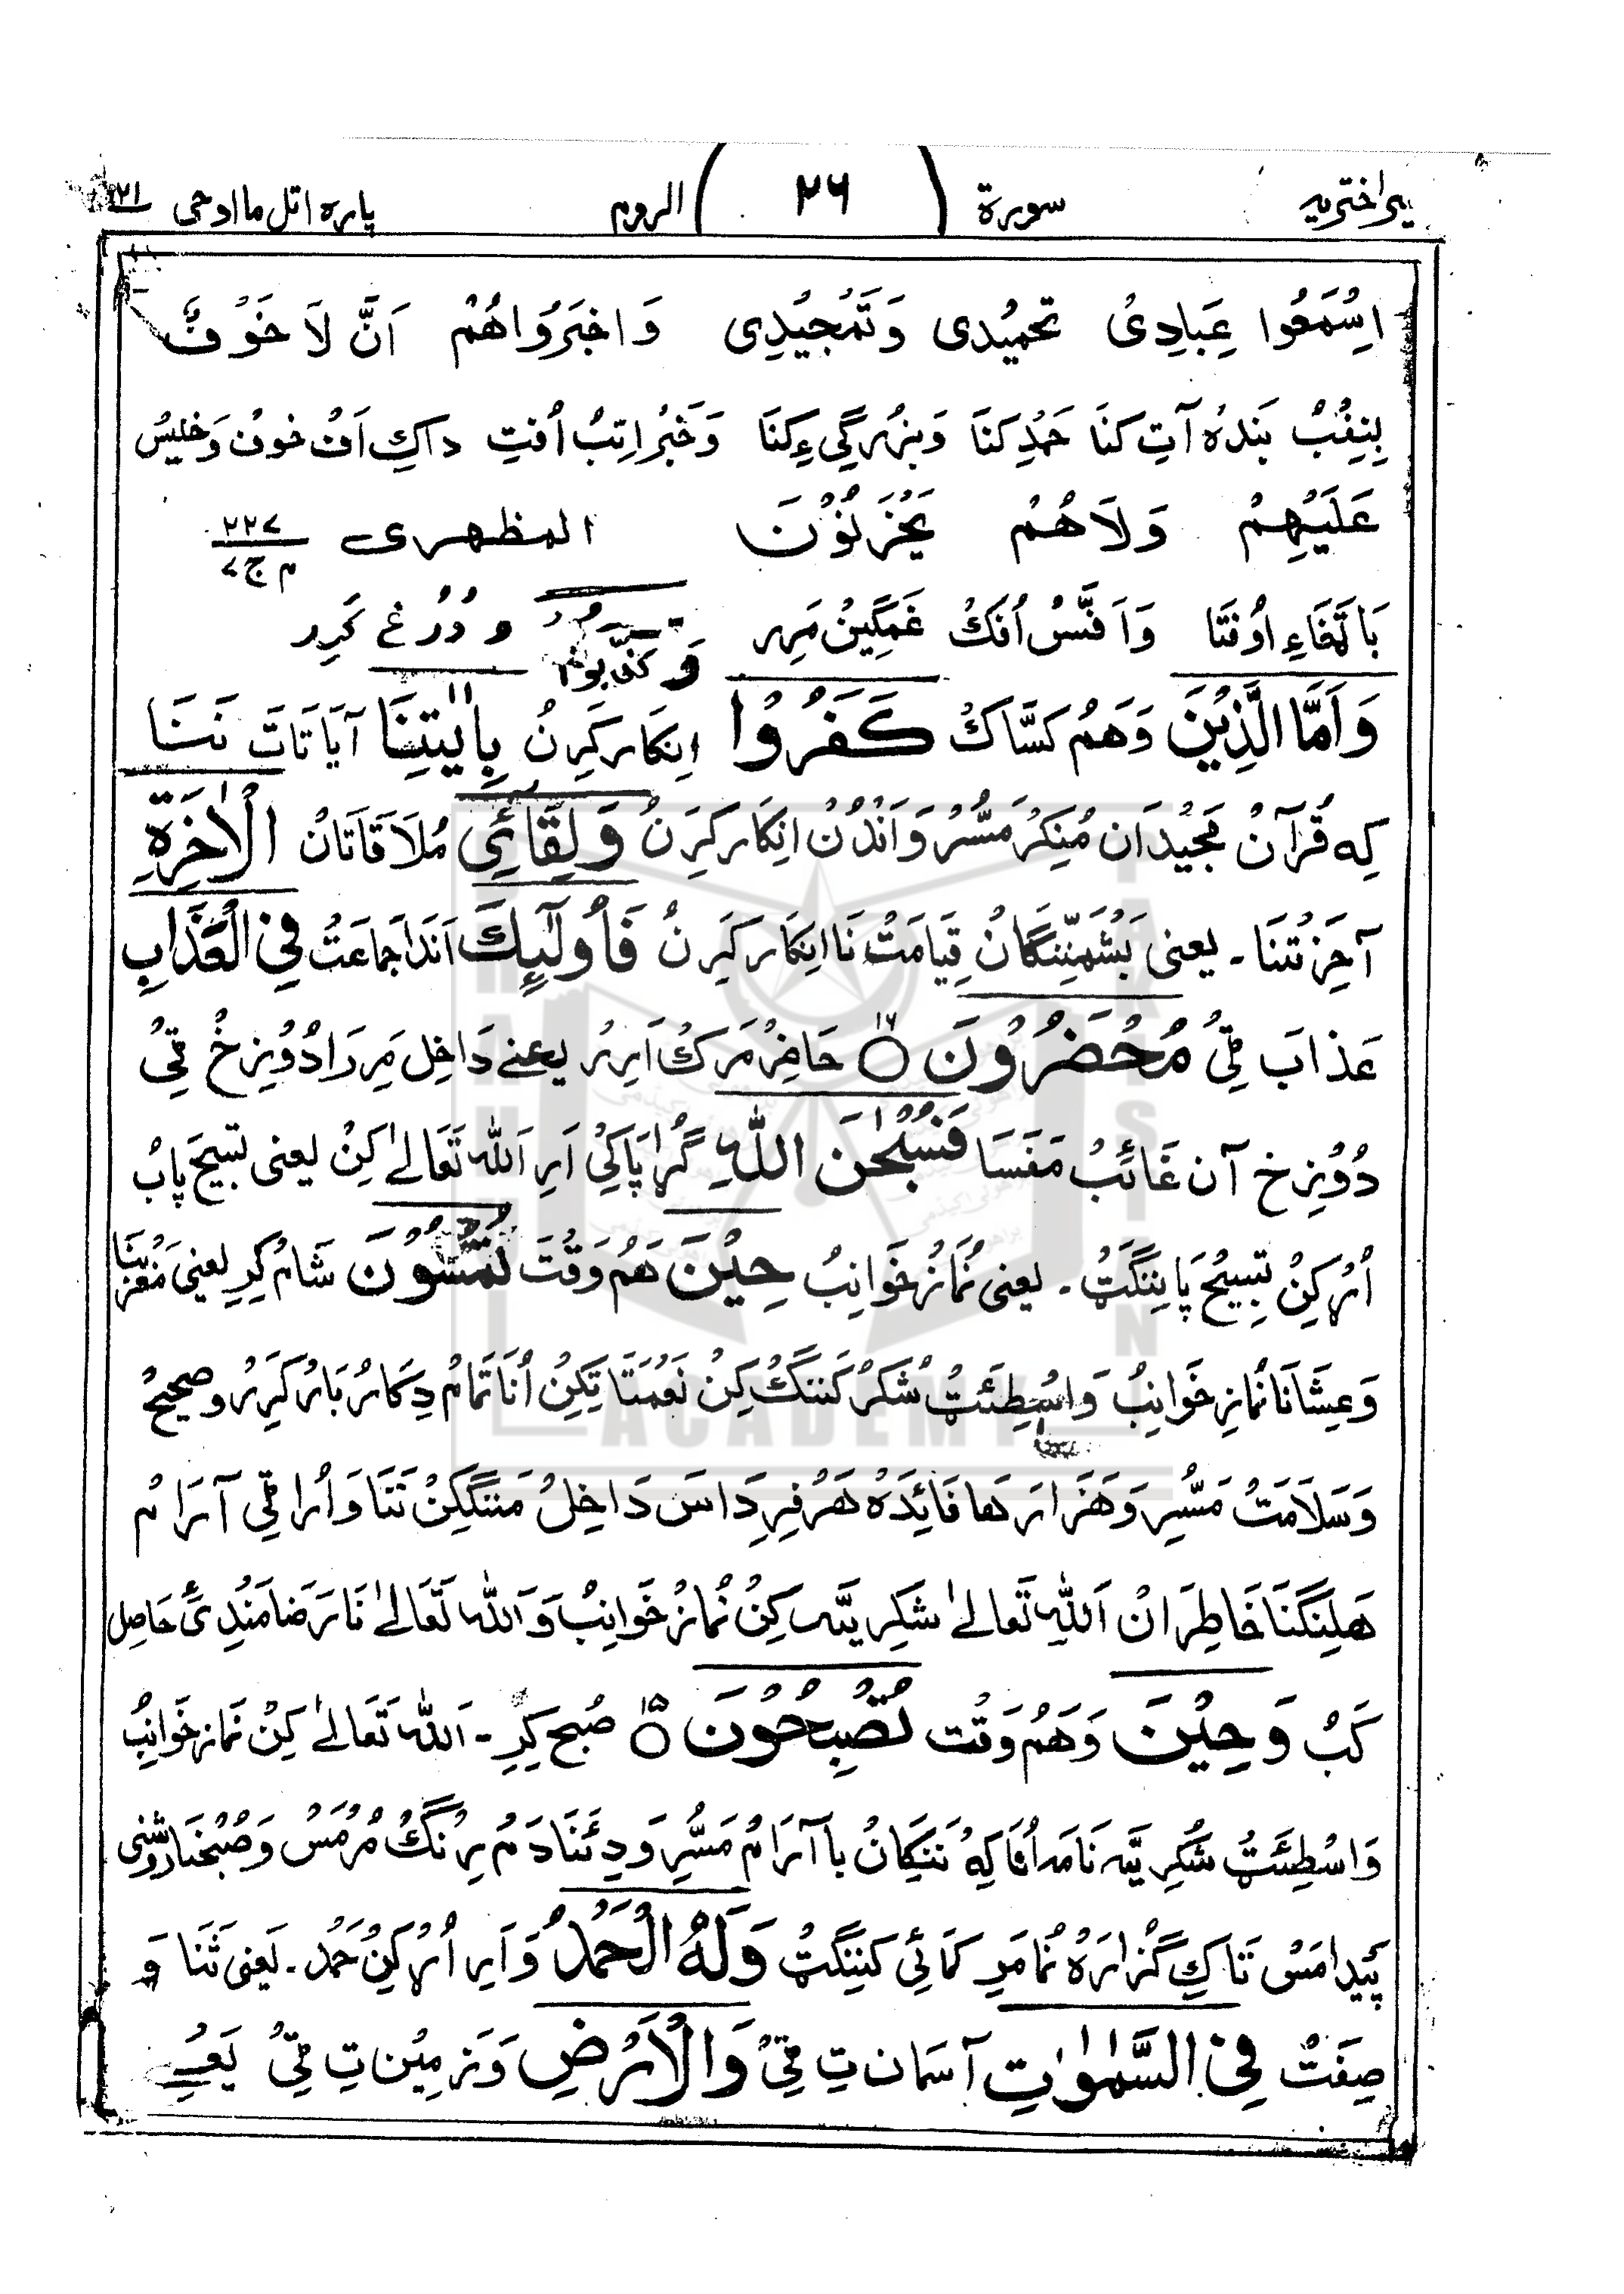 سورة ( ۲۶ ) الروم پاره اتل ما اوحی
اِسْمَعُوا عِبَادِیْ تحمیْدی وَتَمْجِیْدِی وَاخْبَرُواهُمْ اَنَّ لَا خَوْفٌ
بِنِفْبُ بَندهُ آتِ کنَا حَمْدِ کنَا وَ بزرگی ءِ کِنَا وَخَبْر اِتِبْ اُفتِ داکِ اَفْ خوف وَخلیسْ
عَلَیْهِمْ وَلَاهُمْ یَحْزَنُوْنَ المظهری ۲۲۷ م ج۷
وَ اَفَّسْ اُفکْ غَمگِینْ مَرِر وَکَذَّبُوْا و دُرُغ کَرِر
وَاَمَّا الَّذِیْنَ وَهَمْ کسَّاکْ کَفَرُوْا اِنکَار کَرِنْ بِاٰیٰتِنَا آیَاتَاتَ نَنَا
کِه قُرآنْ مَجِیْدَ ان مُنِکرْ مَسُّرْ وَ اَنْدُنْ انِکَار کَرِنْ وَلِقَآئِ مُلَاقَاتَانْ الْاٰخِرَةِ
آخِرْتنَا ۔ یعنی بَشْمَنِّنگانْ قِیَامَتْ نَا انِکَار کَرِنْ فَاُولٰٓئِكَ اَندَا جَماعَتْ فِی الْعَذَابِ
عَذابَ ٹِیْ مُحْضَرُوْنَ ۝۱۶ حَاضِرْ مَرکْ اَرِرْ یعنے دَاخِل مَرِر اُ دُوْزِخْ ٹِیْ
دُوْزِخ آن غَائبْ مَفَسَا فَسُبْحٰنَ اللّٰهِ گُڑا پَاکِیْ اَرِ اَللّٰه تَعَالےٰ کِنْ یعنی تسبیحَ پابْ
اُڑکِنْ تسبِیْح پَانِنگَٹْ ۔ یعنی نُمازْ خَوانِبْ حِیْنَ هَمْ وَقْتَ تُمْسُوْنَ شَامْ کِرِ یعنی مَغْرِبْنَا
وَعِشَانَا نُماز خَوانِبْ وَاسْطِئَٹْ شُکرْ کَننگْ کِنْ نَعْمَتَا تِکِنْ اُنَا تَمَامْ دِکَارُ بَارْ کَرِرْ و صحیحْ
وَسَلَامَتْ مَسُّرِ وَهَزَار هَا فَائِدَهْ هَرْفِرِ دَاسَ دَاخِلْ مَننگکِنْ نَنَا وَ اُرا ٹِی آرَامْ
هَلِنگنَا خَاطِرَانْ اَللّٰهِ تَعالےٰ شکریَّہ کِنْ نُمازْ خَوانِبْ وَ اَللّٰه تَعَالےٰ نَا رَضَا مَنْدِیْ ءَ حَاصِل
کَبْ وَحِیْنَ وَهَمْ وَقْت تُصْبِحُوْنَ ۝۱۷ صُبح کِرِ ۔ اَللّٰه تَعَالےٰ کِنْ نَماز خَوانِبْ
وَاسْطِئَٹْ شُکرِیَّہ نَامَہ اُنَا کِهْ نَنکَانْ با آرَامْ مَسُّرِ وَ دِئَنَا دَمْ دِرْنگْ مُرْمَسْ وَصُبْحنَا رُوشنی
پَیْدا مَسْ تَاکِ گُزارَهْ نُمَا مَرِ کمَائی کننِگَٹْ وَلَهُ الْحَمْدُ وَ اَرِ اُڑکِنْ حَمْد ۔ یَعنی ثَنَا وَ
صِفَتْ فِی السَّمٰوٰتِ آسَمَان تِ ٹِیْ وَالْاَرْضِ وَ زمِیْن تِ ٹِیْ یَعنے